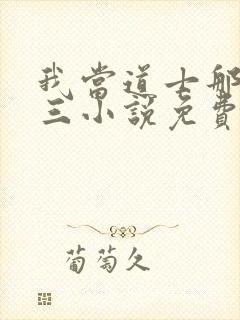 我當道士那
三小說免費
葡萄久